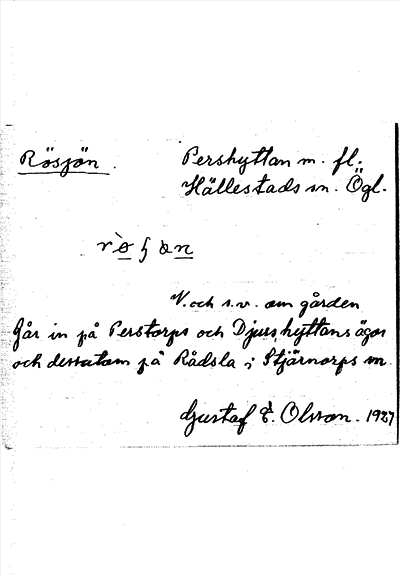 Rösjön.
Pershyttan m. fl.
Hällestads sn. Ögl.
V. och s.v. om gården
Går in på Perstorps och Djurshyttans ägor
och dessutom på Rådsla i Stjärnorps sn.
Gustaf E. Olsson. 1927